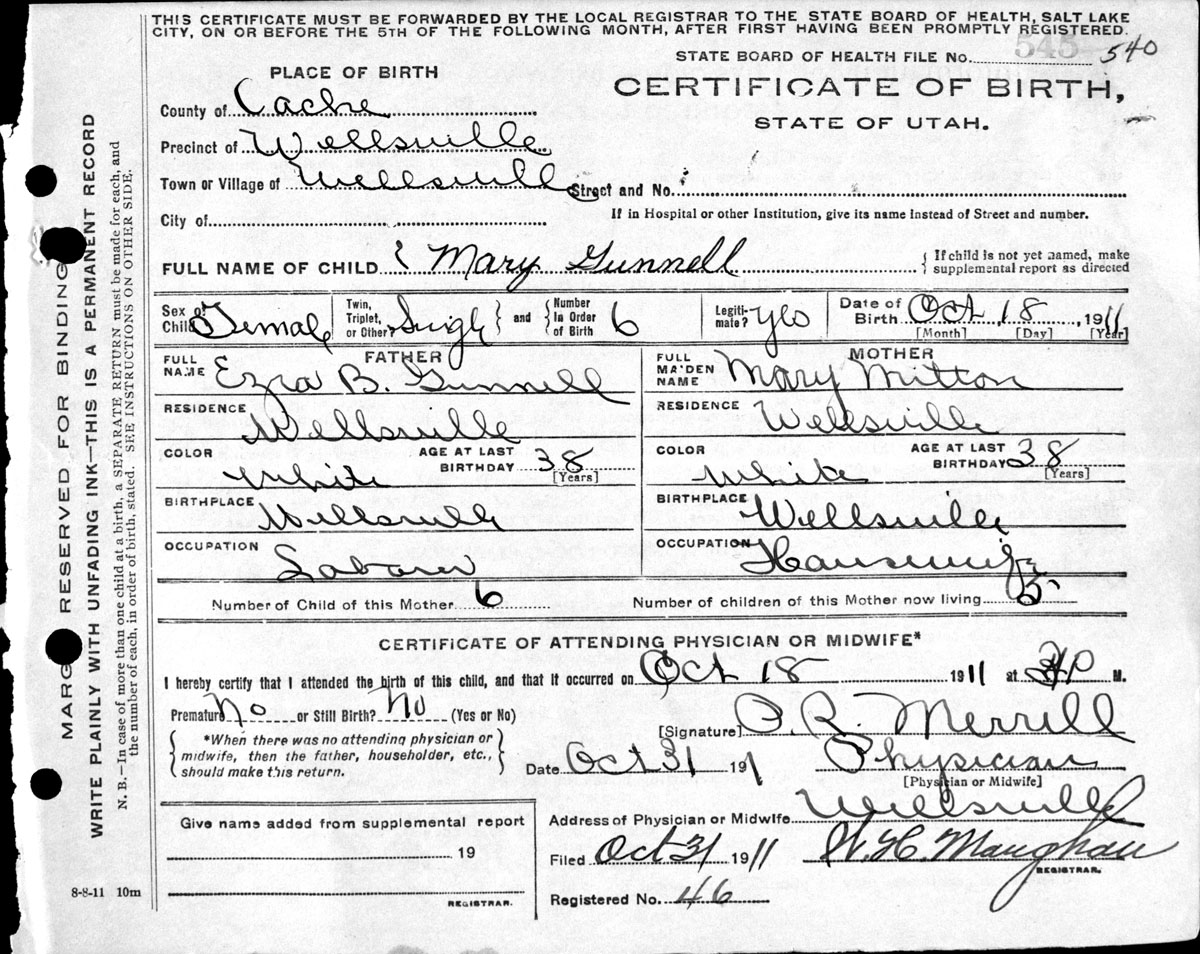 THIS CERTIFICATE MUST BE FORWARDED BY THE LOCAL REGISTRAR TO THE STATE BOARD OF HEALTH, SALT LAKE
CITY, ON OR BEFORE THE 5TH OF THE FOLLOWING MONTH, AFTER FIRST HAVING BEEN PROMPTLY REGISTERED.
STATE BOARD OF HEALTH FILE No. 545 540
PLACE OF BIRTH
CERTIFICATE OF BIRTH,
STATE OF UTAH.
County of Cache
Precinct of Wellsville
Town or Village of Wellsville Street and No.
City of
If in Hospital or other Institution, give its name instead of Street and number.
FULL NAME OF CHILD { Mary Gunnell { If child is not yet named, make
supplemental report as directed
Sex of Child Female { Twin, Triplet, or Other? Single } and { Number In Order of Birth 6 Legiti-mate? Yes Date of Birth Oct 18, 1911
[Month] [Day] [Year]
FATHER MOTHER
FULL NAME Ezra B. Gunnell FULL MAIDEN NAME Mary Mitton
RESIDENCE Wellsville RESIDENCE Wellsville
COLOR White AGE AT LAST BIRTHDAY 38 [Years] COLOR White AGE AT LAST BIRTHDAY 38 [Years]
BIRTHPLACE Wellsville BIRTHPLACE Wellsville
OCCUPATION Laborer OCCUPATION Housewife
Number of Child of this Mother 6 Number of children of this Mother now living 5
CERTIFICATE OF ATTENDING PHYSICIAN OR MIDWIFE*
I hereby certify that I attended the birth of this child, and that it occurred on Oct 18 1911 at M.
Premature No or Still Birth? No (Yes or No)
[Signature] Merrill
*When there was no attending physician or
midwife, then the father, householder, etc.,
should make this return.
Date Oct 31 191 Physician
[Physician or Midwife]
Give name added from supplemental report
19
REGISTRAR.
Address of Physician or Midwife Wellsville
Filed Oct 31 1911 W. H. Maughan
REGISTRAR.
Registered No. 46
8-8-11 10m
MARG RESERVED FOR BINDING
WRITE PLAINLY WITH UNFADING INK—THIS IS A PERMANENT RECORD
N. B.—In case of more than one child at a birth, a SEPARATE RETURN must be made for each, and
the number of each, in order of birth, stated. SEE INSTRUCTIONS ON OTHER SIDE.